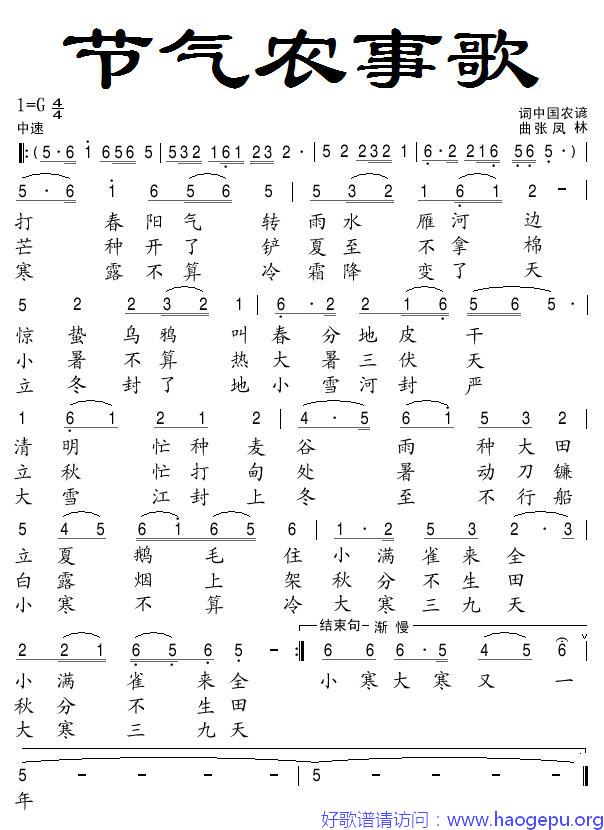 节气农事歌
1=G 4/4
词中国农谚
中速
曲张凤林
‖:(5·6 1 656 5 | 532 161 23 2 | 5 2 232 1 | 6·2 216 56 5·)|
5·6 1 6 5 6 5 | 5 3 2 1 6 1 2 - |
打 春阳气 转雨水 雁河边
芒 种开了 铲夏至 不拿棉
寒 露不算 冷霜降 变了天
5 2 2 2 3 2 1 | 6·2 2 1 6 5 6 5 |
惊蛰乌鸦叫春分地皮干
小暑不算热大暑三伏天
立冬封了地小雪河封严
1 6 1 2 1 2 | 4·5 6 1 5 3 2 |
清明 忙种麦谷 雨 种大田
立秋 忙打甸处 暑 动刀镰
大雪 江封上冬 至 不行船
5 4 5 6 1 6 5 6 5 | 1·2 5 3 2·3 |
立夏鹅毛住小满雀来全
白露烟上架秋分不生田
小寒不算冷大寒三九天
结束句 渐 慢
2 2 1 6 5 6 5 - :‖ 6 6 6·5 4 5 6 |
小满雀来全 小寒大寒又一
秋分不生田
大寒三九天
5 - - - | 5 - - - ‖
年
好歌谱请访问：www.haogepu.org